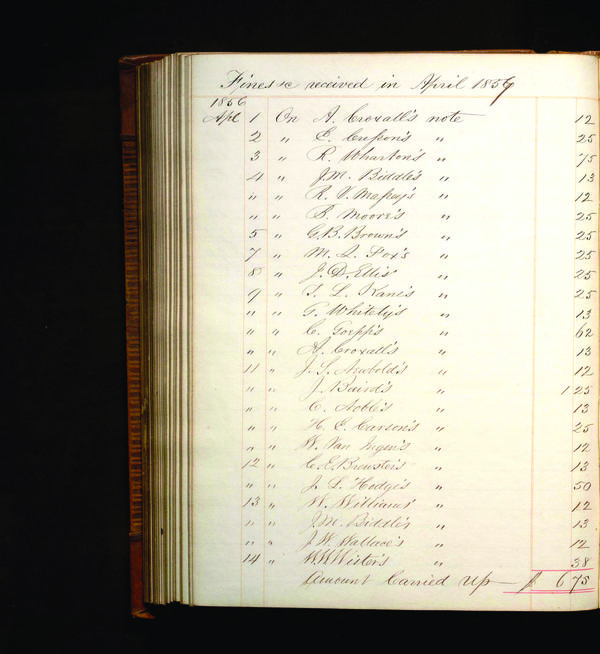 Fines &c received in April 1856
1856
Apl 1 On A. Croxall's note 12
2 " E. Cresson's " 25
3 " R. Wharton's " 75
4 " J.M. Biddle's " 13
" " R. V. Massey's " 12
" " B. Moore's " 25
5 " G.B. Brown's " 25
7 " M. L. Fox's " 25
8 " J. D. Ellis' " 25
9 " T. L. Kane's " 25
" " G. Whitely's " 13
" " C. " 62
" " A. Croxall's " 13
11 " J. S. Newbold's " 12
" " J. Baird's " 1 25
" " C. Noble's " 13
" " H. C. Carson's " 25
" " W. Van Ingen's " 12
12 " C.E. Brewster's " 13
" " J. L. Hodge's " 50
13 " W. Williams' " 12
" " J.M. Biddle's " 13
" " J.W. Wallace's " 12
14 " W.W. Wister's " 38
Amount Carried Up — $ 6 75